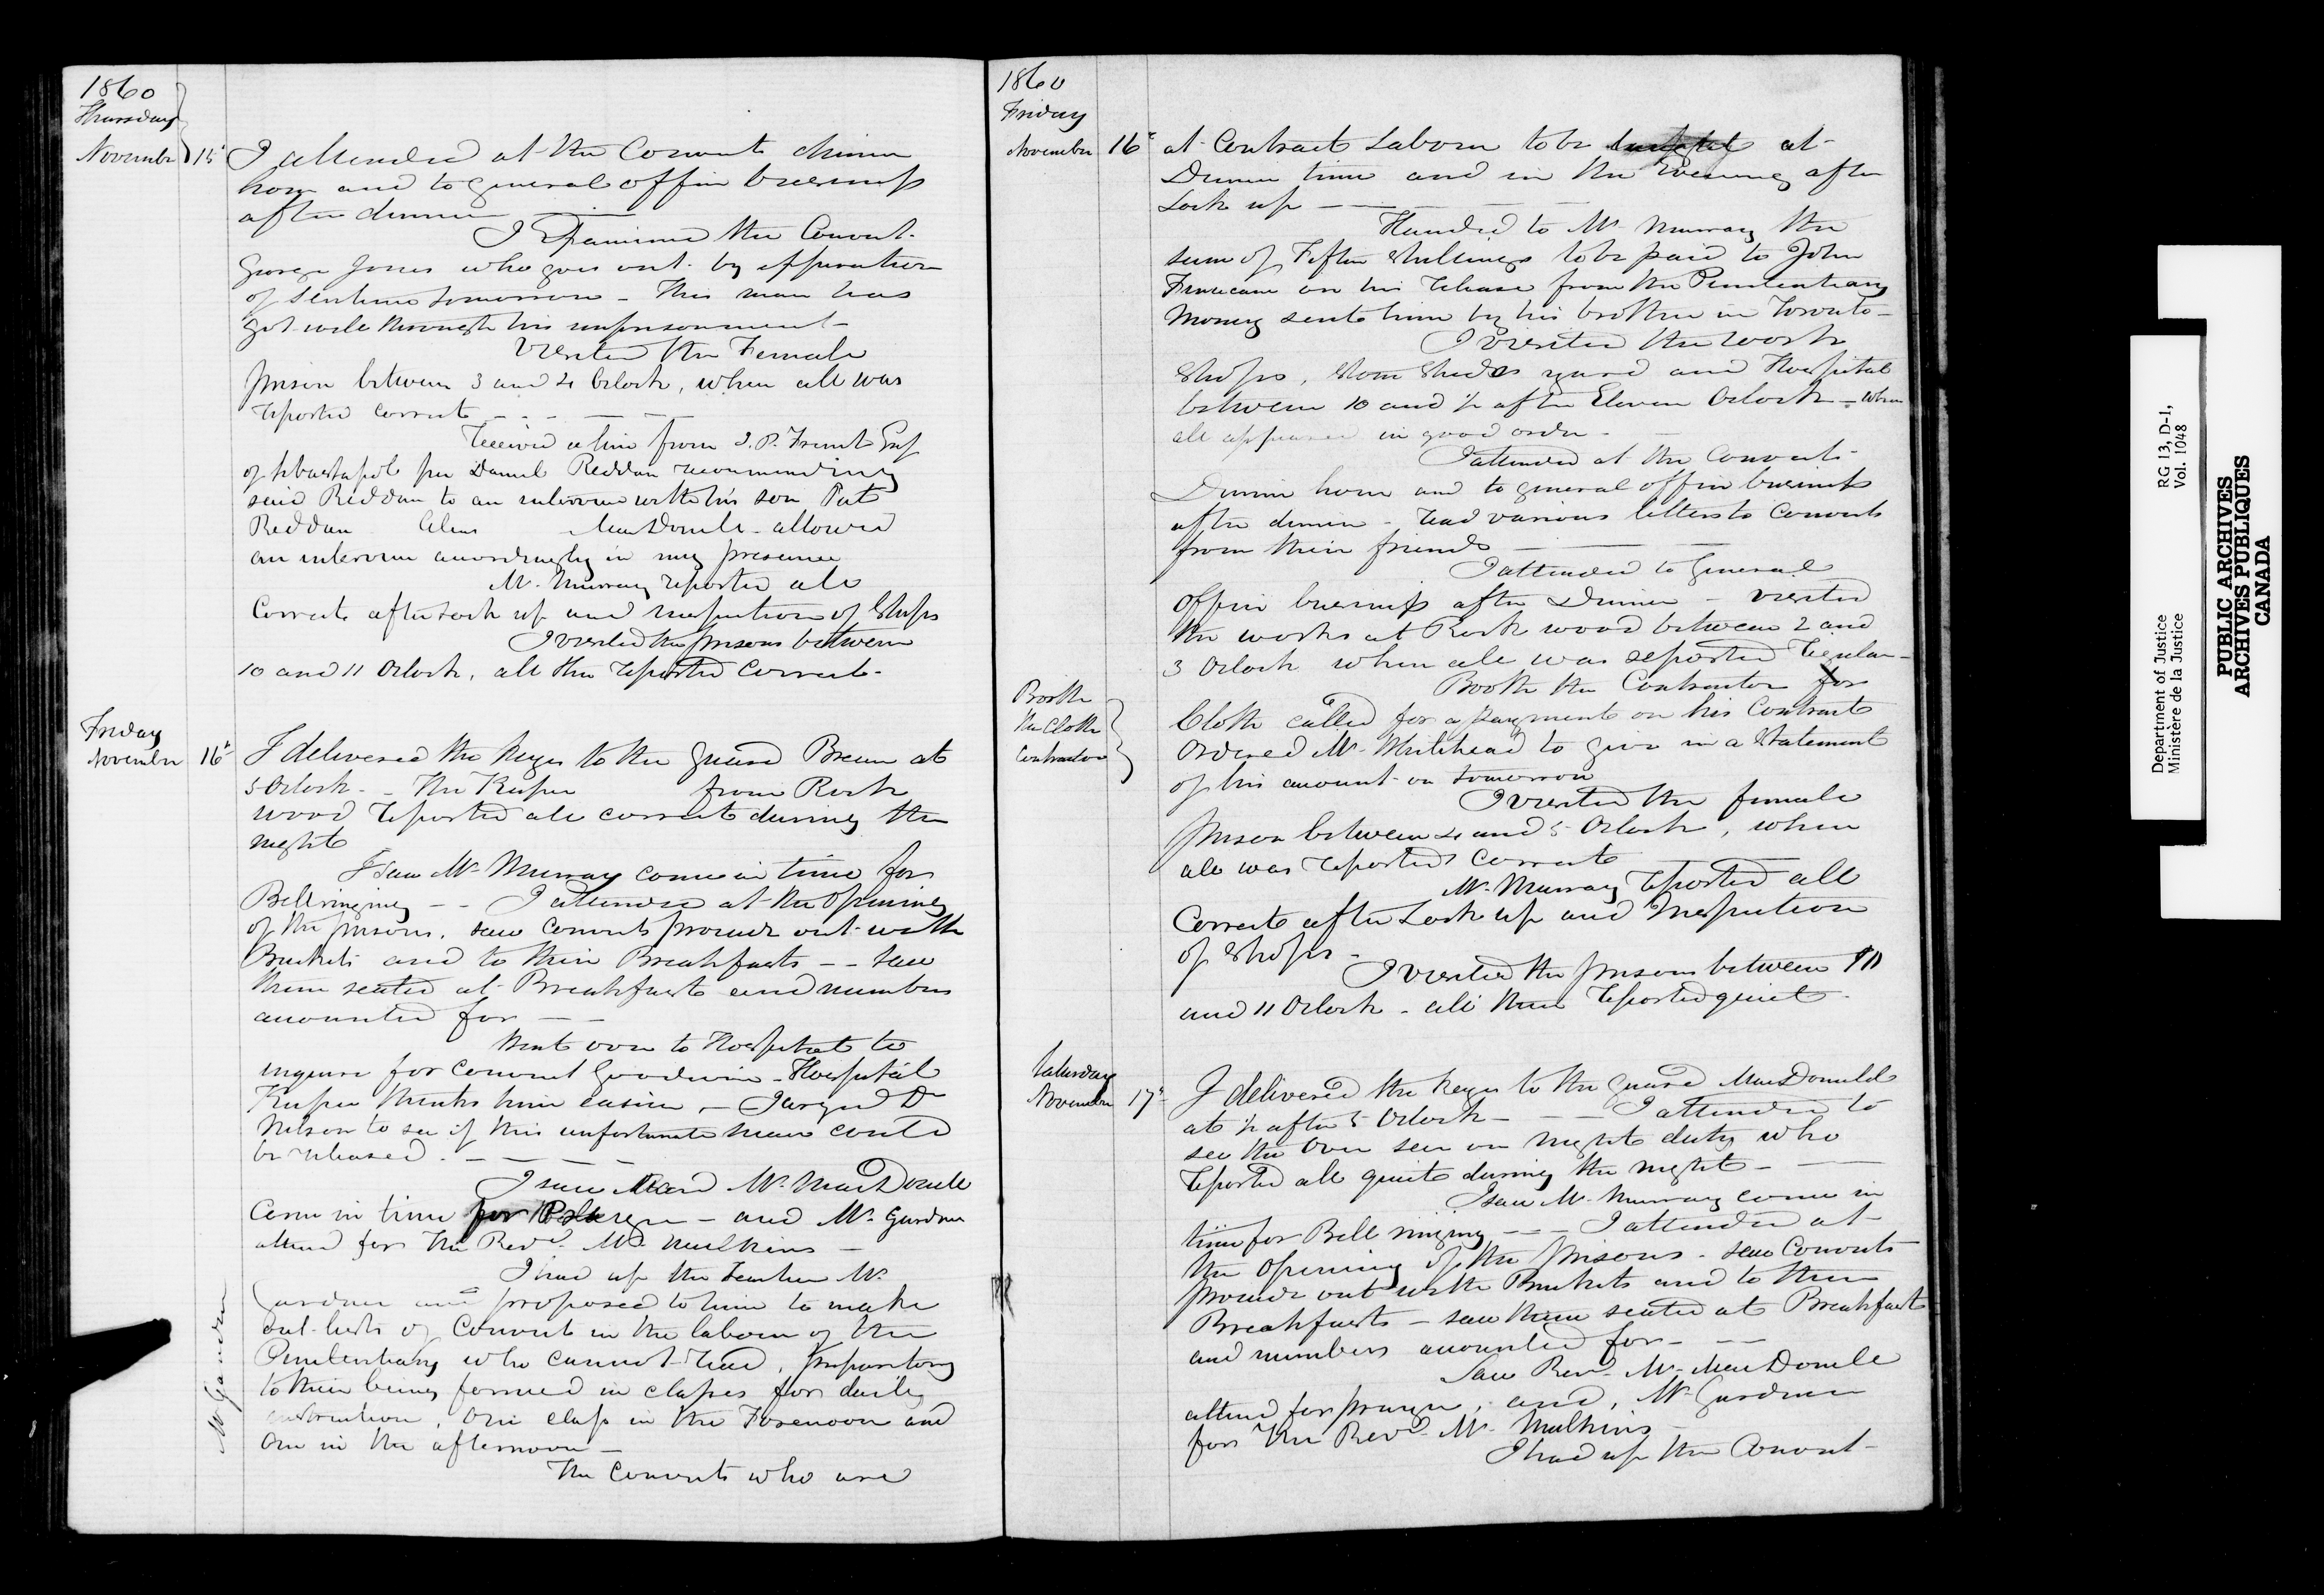 1860
Thursday
November 15t I attended at the Convicts dinner
hour and to general office business
after dinner
I Examined the Convict
George Jones who goes out by expiration
of sentence tomorrow - This man has
got well through his imprisonment -
Visited the Female
prison between 3 and 4 Oclock, when all was
reported correct
Received a line from Esq
of per Daniel Reddan recommending
said Reddan to an interview with his son Pat
Reddan alias MacDonell - allowed
an interview accordingly in my presence
Mr. Murray reported all
Correct after Lock up and inspection of Shops
I visited the prisons between
10 and 11 Oclock, all then reported Correct -
Friday
November 16t I delivered the keys to the guard at
5 Oclock - - The Keeper from Rock
wood reported all correct during the
night
I saw Mr Murray come in time for
Bell ringing - - I attended at the Opening
of the prisons, saw Convicts proceed out with
Buckets and to their Breakfasts - - saw
them seated at Breakfast and numbers
accounted for - -
Went over to Hospital to
inquire for Convict Goodwin - Hospital
Keeper thinks him easier - I urged Dr
Nelson to see if this unfortunate man could
be released -
I saw Revd Mr. MacDonell
Come in time for - and Mr. Gardner
attend for The Revd. Mr. Mulkins -
I had up the Teacher Mr.
Gardner and proposed to him to make
out lists of Convicts in the labour of the
Penitentiary who cannot read, preparatory
to their being formed in classes for daily
instruction, One class in the Forenoon and
One in the afternoon -
The Convicts who are
Mr Gardner
1860
Friday
November 16t at Contract Labour to be at
Dinner time and in the Evening after
Lock up
Handed to Mr. Murray the
sum of Fifteen Shillings to be paid to John
Finucane on his release from the Penitentiary
Money sent him by his brother in Toronto -
I visited the work
Shops, Stone Sheds yard and Hospital
between 10 and ½ after Eleven Oclock - when
all appeared in good order -
I attended at the Convicts
Dinner hour and to general office business
after dinner - read various letters to Convicts
from their friends
I attended to General
Office business after Dinner - visited
the works at Rock wood between 2 and
3 Oclock when all was reported regular -
Booth
the Cloth
Contractor
Booth the Contractor for
Cloth called for a payment on his Contract
Ordered Mr. Whitehead to give in a Statement
of his amount on tomorrow
I visited the female
prison between 4 and 5 Oclock, when
all was reported Correct
Mr. Murray reported all
Correct after Lock up and Inspection
of Shops -
I visited the prisons between 10
and 11 Oclock - all then reported quiet -
Saturday
November 17t I delivered the keys to the guard MacDonald
at ½ after 5 Oclock - I attended to
see the Over seer on night duty who
reported all quiet during the night -
I saw Mr. Murray come in
time for Bell ringing - - - I attended at
the Opening of the prisons - saw Convicts
proceed out with Buckets and to their
Breakfasts - saw them seated at Breakfast
and numbers accounted for - -
Saw Revd. Mr. MacDonell
attend for prayer, and, Mr. Gardner
for The Revd. Mr. Mulkins
I had up the Convict
Department of Justice
Ministère de la Justice
RG 13, D-1,
Vol. 1048
PUBLIC ARCHIVES
ARCHIVES PUBLIQUES
CANADA